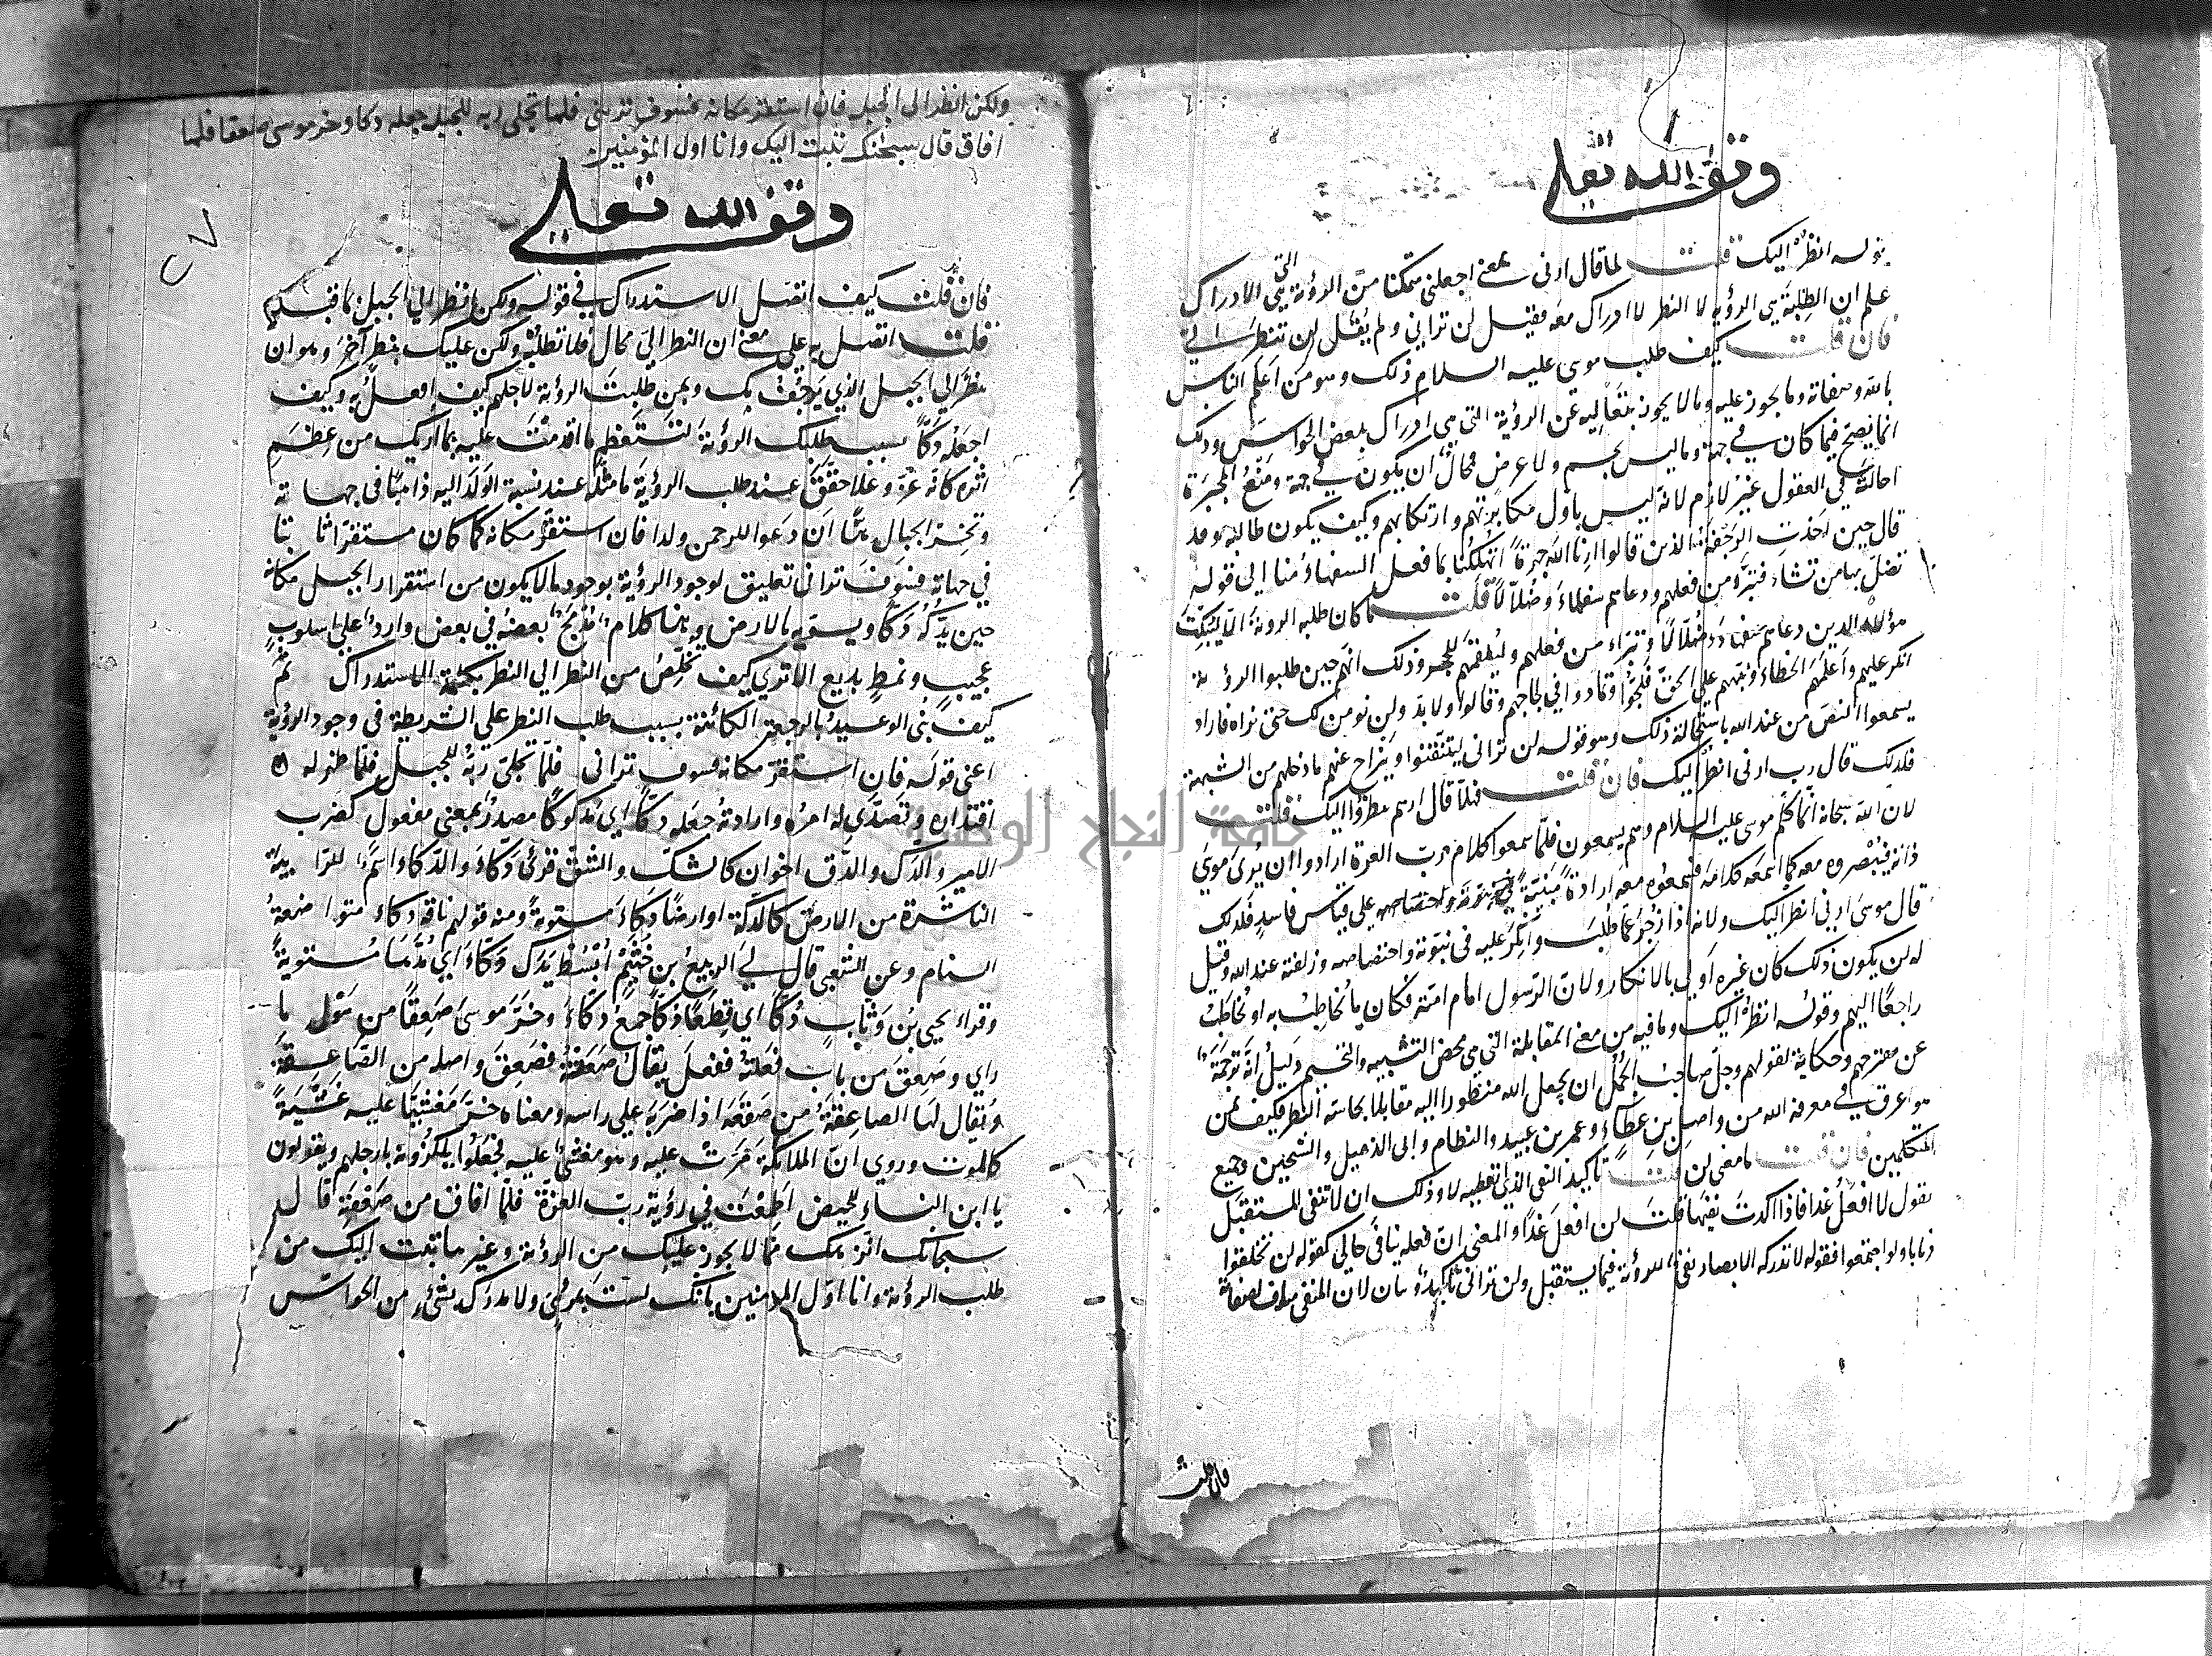 وقف الله تعالى
بقوله انظر اليك قلت لما قال ارنى بمعنى اجعلنى متمكنا من الرؤية التى هى الادراك
علم ان الطلبة هى الرؤية لا النظر لا ادراك معه فقيل لن ترانى ولم يقل لن تنظر الى
فان قلت كيف طلب موسى عليه السلام ذلك وهو من اعلم الناس
بالله وصفاته وما يجوز عليه وما لا يجوز بتعاليه عن الرؤية التى هى ادراك ببعض الحواس وذلك
انما يصح فيما كان فى جهة وما ليس بجسم ولا عرض فمحال ان يكون فى جهة ومنع المجبرة
احالته فى العقول غير لازم لانه ليس باول مكابرتهم وارتكابهم وكيف يكون طالبه وقد
قال حين اخذت الرجفة الذين قالوا ارنا الله جهرة اتهلكنا بما فعل السفهاء منا الى قوله
تضل بها من تشاء فتبرأ من فعلهم ودعاهم سفهاء وضلالا قلت ما كان طلبه الرؤية الا ليبكت
هؤلاء الذين دعاهم سفهاء وضلالا وتبراء من فعلهم وليلقمهم الحجر وذلك انهم حين طلبوا الرؤية
انكر عليهم واعلمهم الخطاء ونبههم على الحق فلجوا وتمادوا فى لجاجهم وقالوا لا بد ولن نومن لك حتى نراه فاراد
يسمعوا النص من عند الله باستحالة ذلك وهو قوله لن ترانى ليتيقنوا وينزاح عنهم ما دخلهم من الشبهة
فلذلك قال رب ارنى انظر اليك فان قلت فهلا قال ارهم ينظروا اليك قلت
لان الله سبحانه انما كلم موسى عليه السلام وهم يسمعون فلما سمعوا كلام رب العزة ارادوا ان يرى موسى
ذاته فيبصروه معه كما اسمعه كلامه فسمعوه معه ارادة مبنية على قياس فاسد فلذلك
قال موسى ارنى انظر اليك ولانه اذا زجر عما طلب وانكر عليه فى نبوته واختصاصه وزلفته عند الله وقيل
له لن يكون ذلك كان غيره اولى بالانكار ولان الرسول امام امته فكان ما يخاطب به او يخاطب
راجعا اليهم وقوله انظر اليك وما فيه من معنى المقابلة التى هى محض التشبيه والتجسيم دليل انه ترجمة
عن مقترحهم وحكاية لقولهم وجل صاحب الجمل ان يجعل الله منظورا اليه مقابلا بحاسة النظر فكيف بمن
هو اعرق فى معرفة الله من واصل بن عطاء وعمر بن عبيد والنظام وابى الذهيل والشيخين وجميع
المتكلمين فان قلت ما معنى لن قلت تاكيد النفى الذى تعطيه لا وذلك ان لا تنفى المستقبل
تقول لا افعل غدا فاذا اكدت نفيها قلت لن افعل غدا والمعنى ان فعله ينافى حالى كقوله لن يخلقوا
ذبابا ولو اجتمعوا فقوله لا تدركه الابصار نفى للرؤية فيما يستقبل ولن ترانى تاكيد وبيان لان المنفى مناف لصفاته
فان قلت
ولكن انظر الى الجبل فان استقر مكانه فسوف ترينى فلما تجلى ربه للجبل جعله دكا وخر موسى صعقا فلما
افاق قال سبحنك تبت اليك وانا اول المؤمنين
وقف الله تعالى
٢٧
فان قلت كيف اتصل الاستدراك فى قوله ولكن انظر الى الجبل بما قبله
قلت اتصل به على معنى ان النظر الى محال فلا تطلبه ولكن عليك بنظر آخر وهو ان
تنظر الى الجبل الذى يرجف بك وبمن طلبت الرؤية لاجلهم كيف افعل به وكيف
اجعله دكا بسبب طلبك الرؤية لتستعظم ما اقدمت عليه بما اريك من عظم
اثره كانه عز وعلا حقق عند طلب الرؤية ما مثله عند نسبة الولد اليه ذاهبا فى جهاته
وتخر الجبال هدا ان دعوا للرحمن ولدا فان استقر مكانه كما كان مستقرا ثابتا
فى جهاته فسوف ترانى تعليق لوجود الرؤية بوجود ما لا يكون من استقرار الجبل مكانه
حين يدكه دكا ويسويه بالارض وهنا كلام مدمج بعضه فى بعض وارد على اسلوب
عجيب ونمط بديع الا ترى كيف تخلص من النظر الى النظر بكلمة الاستدراك ثم
كيف بنى الوعيد بالرجفة الكائنة بسبب طلب النظر على الشريطة فى وجود الرؤية
اعنى قوله فان استقر مكانه فسوف ترانى فلما تجلى ربه للجبل فلما ظهر له
اقتداره وتصدى له امره وارادته جعله دكا اى مدكوكا مصدر بمعنى مفعول كضرب
الامير والدك والدق اخوان كالشك والشق قرئ دكاء والدكاء اسم للرابية
الناشزة من الارض كالدكة او ارضا دكاء مستوية ومنه قولهم ناقة دكاء متواضعة
السنام وعن الشعبى قال لى الربيع بن خثيم ابسط يدك دكاء اى مدها مستوية
وقراء يحيى بن وثاب دكا اى قطعا دكا جمع دكاء وخر موسى صعقا من هول ما
راى وصعق من باب فعلته ففعل يقال صعقته فصعق واصله من الصاعقة
ويقال لها الصاعقة من صقعه اذا ضربه على راسه ومعناه خر مغشيا عليه غشية
كالموت وروى ان الملائكة مرت عليه وهو مغشى عليه فجعلوا يلكزونه بارجلهم ويقولون
يا ابن النساء الحيض اطمعت فى رؤية رب العزة فلما افاق من صعقته قال
سبحانك انزهك مما لا يجوز عليك من الرؤية وغيرها تبت اليك من
طلب الرؤية وانا اول المؤمنين بانك لست بمرئى ولا مدرك بشئ من الحواس
جامعة النجاح الوطنية